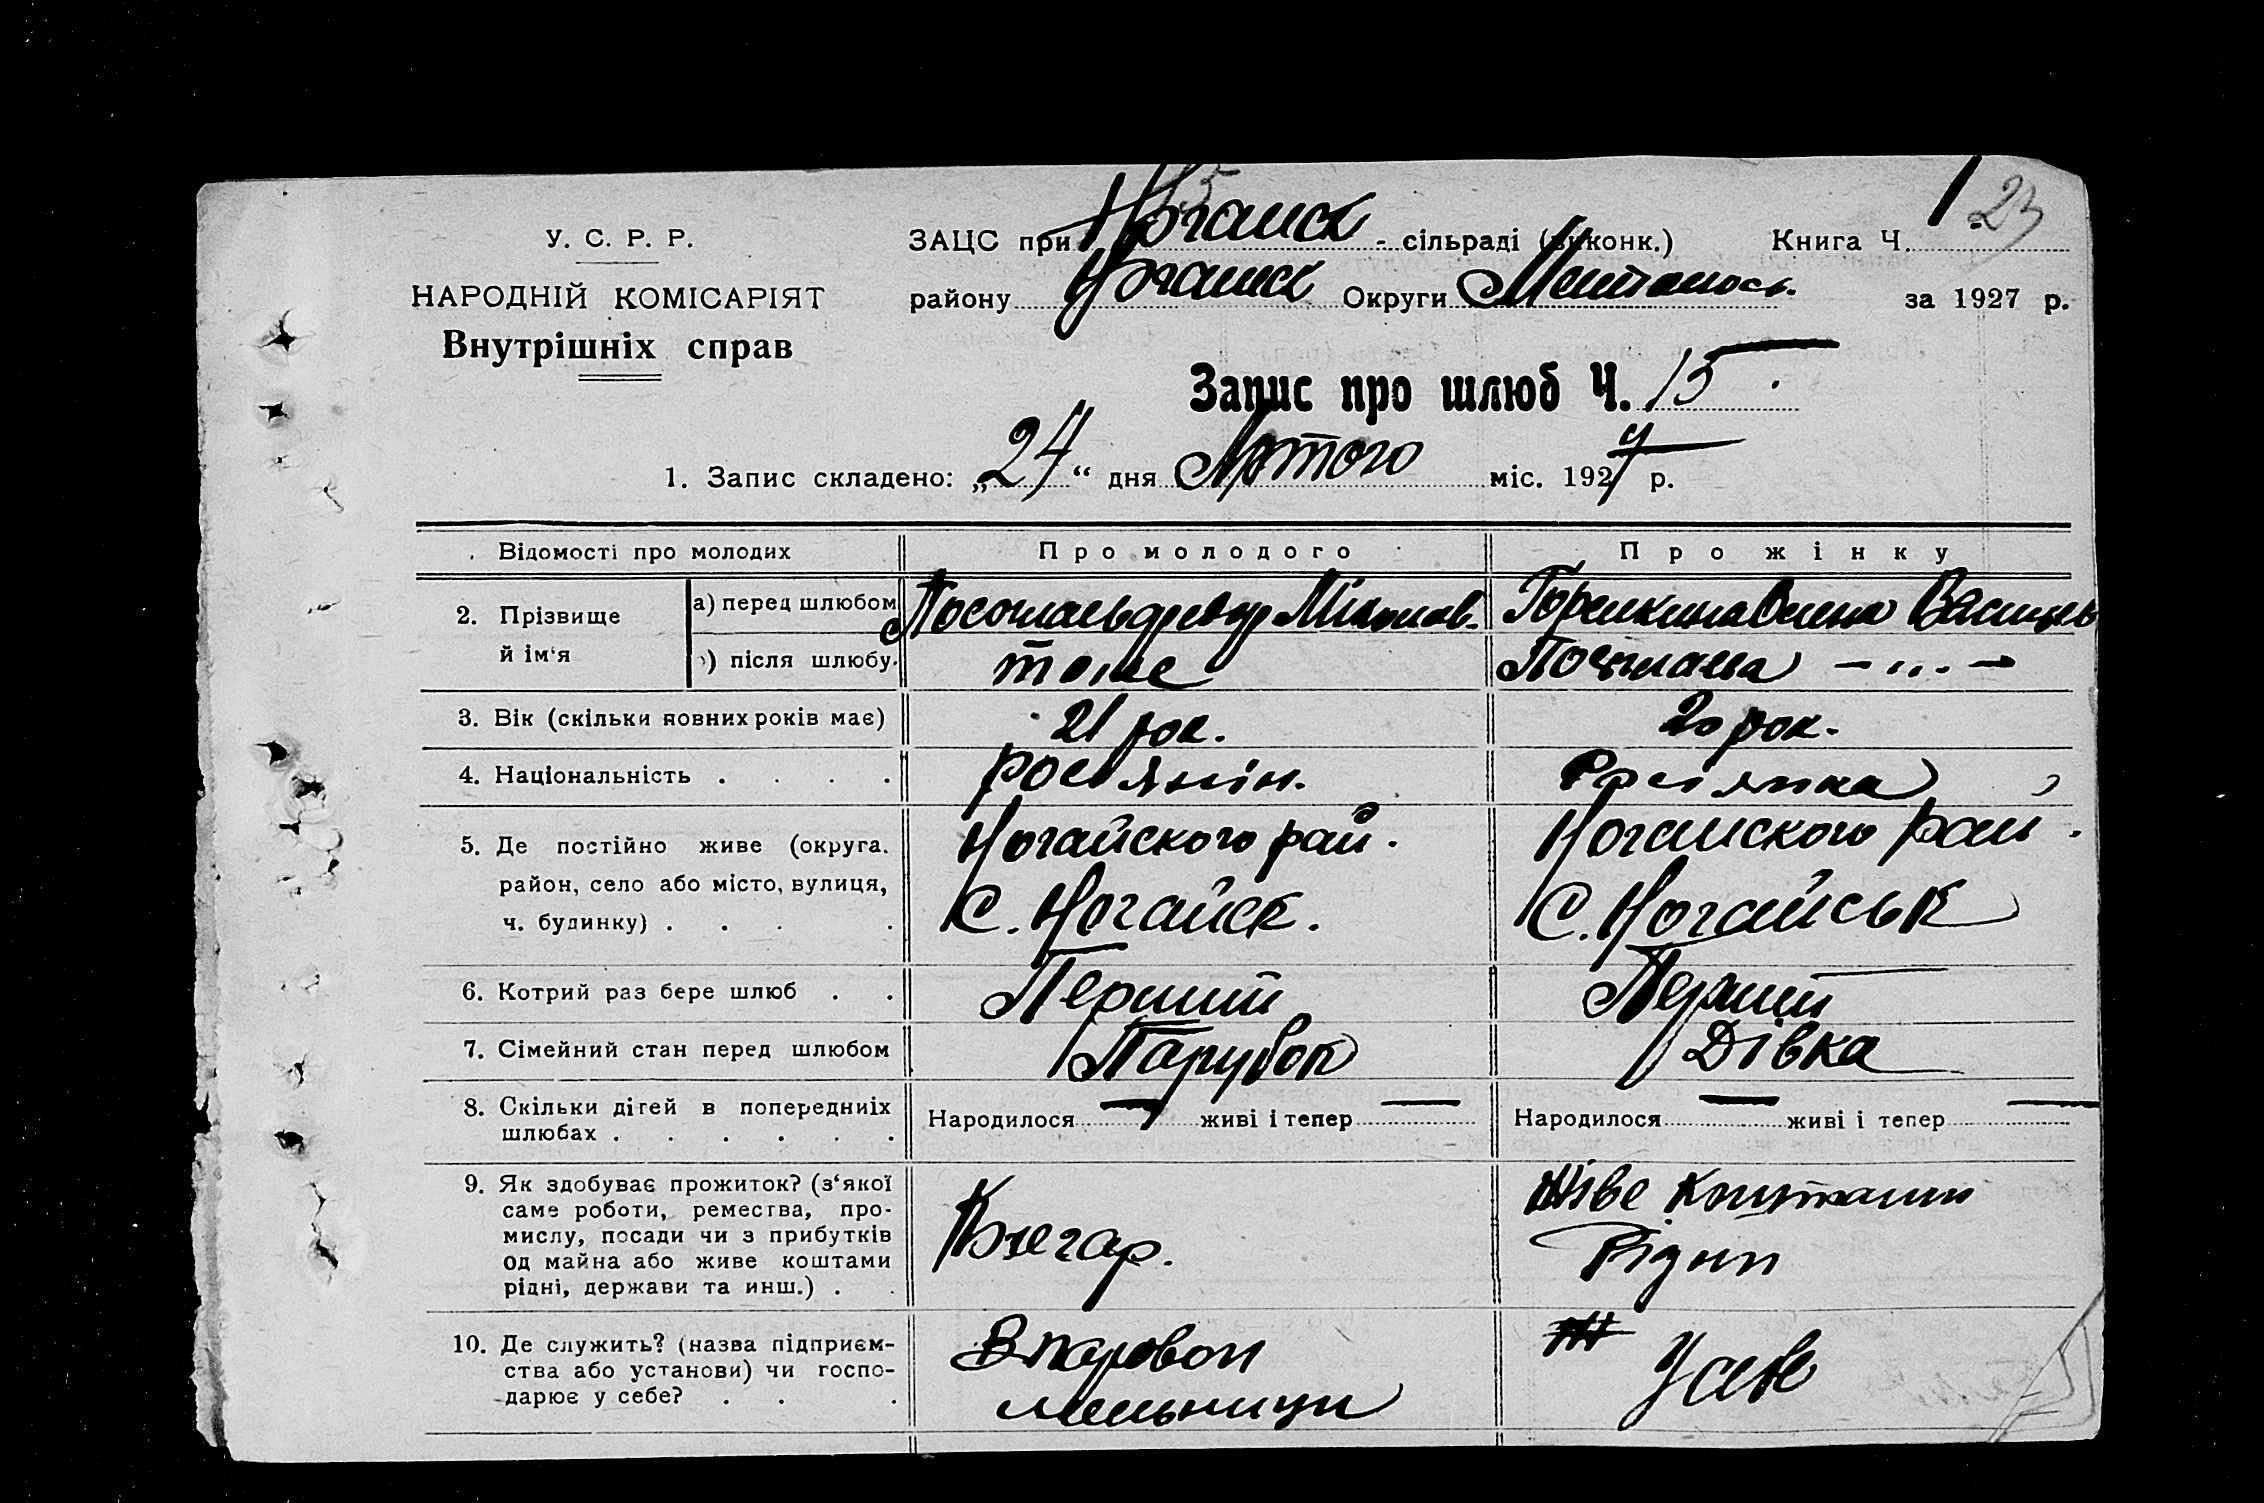 У. С. Р. Р.
НАРОДНІЙ КОМІСАРІЯТ
Внутрішніх справ
15
23
ЗАЦС при Ногайск - сільраді (виконк.) Книга Ч. 1
району Ногайск Округи за 1927 р.
Запис про шлюб Ч. 15
1. Запис складено: „24“ дня Лютого міс. 1927 р.
Відомості про молодих
Про молодого
Про жінку
2. Прізвище й ім'я
а) перед шлюбом
Василів
) після шлюбу.
тоже
— „ —
3. Вік (скільки повних років має)
21 рок.
20 рок.
4. Національність . . . .
росіянін.
Росіянка
5. Де постійно живе (округа.
район, село або місто, вулиця,
ч. будинку) . . . .
Ногайского рай.
С. Ногайск.
Ногайского рай.
С. Ногайськ
6. Котрий раз бере шлюб . .
Перший
Перший
7. Сімейний стан перед шлюбом
Парубок
Дівка
8. Скільки дітей в попередниіх
шлюбах . . . . . .
Народилося — живі і тепер —
Народилося — живі і тепер —
9. Як здобуває прожиток? (з'якої
саме роботи, ремества, про-
мислу, посади чи з прибутків
од майна або живе коштами
рідні, держави та инш.) . .
Кочегар.
Живе коштами
Рідни
10. Де служить? (назва підприєм-
ства або установи) чи госпо-
дарює у себе? . . .
В паровои
мельници
У себе